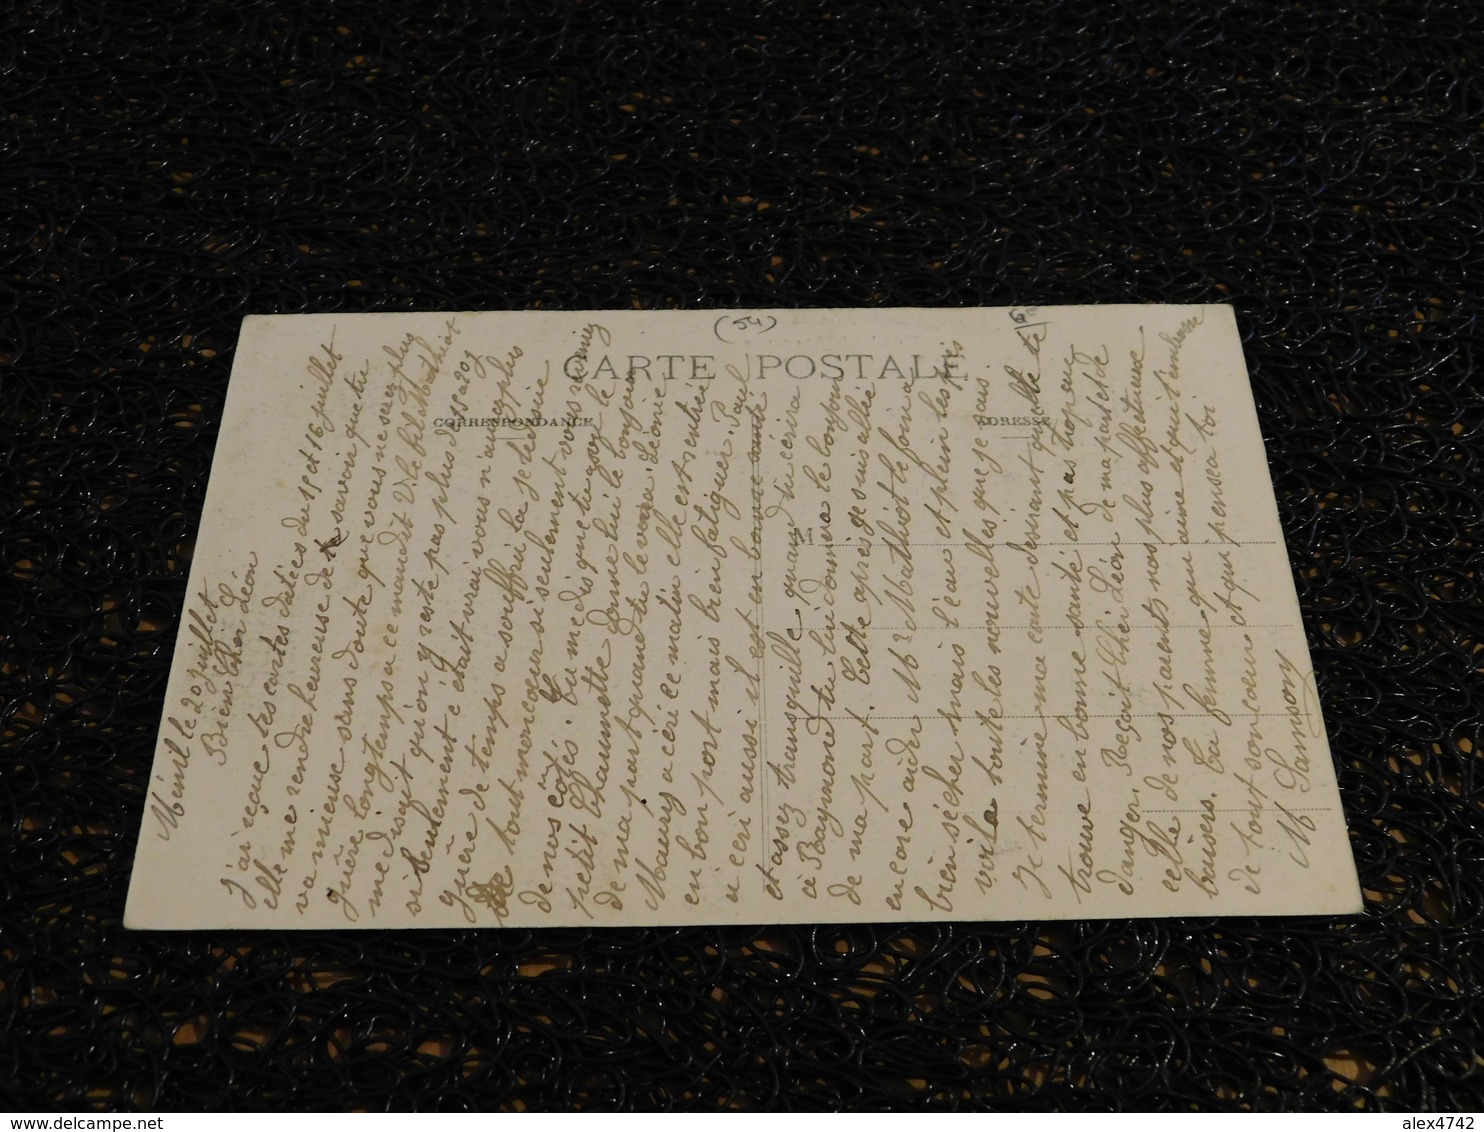 (54)
CARTE POSTALE
CORRESPONDANCE
ADRESSE
M
Ménil le 20 juillet
Bien Cher Léon
J'ai reçue tes cartes datées du 15 et 16 juillet
elle me rendre heureuse de savoir que tu
va mieuse sans doute que vous ne serez plus
guère longtemps a ce maudit Mathiot
me disait qu'on y reste pas plus de 15 a 20 j
si seulement c'était vrai vous n'aurez plus
guère de temps a souffrir la je désire
de tout mon cœur si seulement vous veniez
de nos côtés. Tu me dis que tu a vu le
petit Chaumette donne lui le bonjour
de ma part quand tu le verra Léonie
Maury a écri ce matin elle est rentrée
en bon port mais bien fatiguer. Paul
a écri aussi il est en bonne santé
et assez tranquille quand tu écrira
à Raymond tu lui donnera le bonjour
de ma part. Cette après je suis allée
encore aider Mr Mathiot le foin a
bien sécher mais l'eau et plein les prés
voila toute les nouvelles que je sais
Je termine ma carte desirant qu'elle te
trouve en bonne santé et pas trop en
danger. Reçoit Cher Léon de ma part et de
celle de nos parents nos plus affectueuse
baisers. Ta femme qui aime et qui t'embrasse
de tout son cœur et qui pense a toi
M Sanson
alex4742